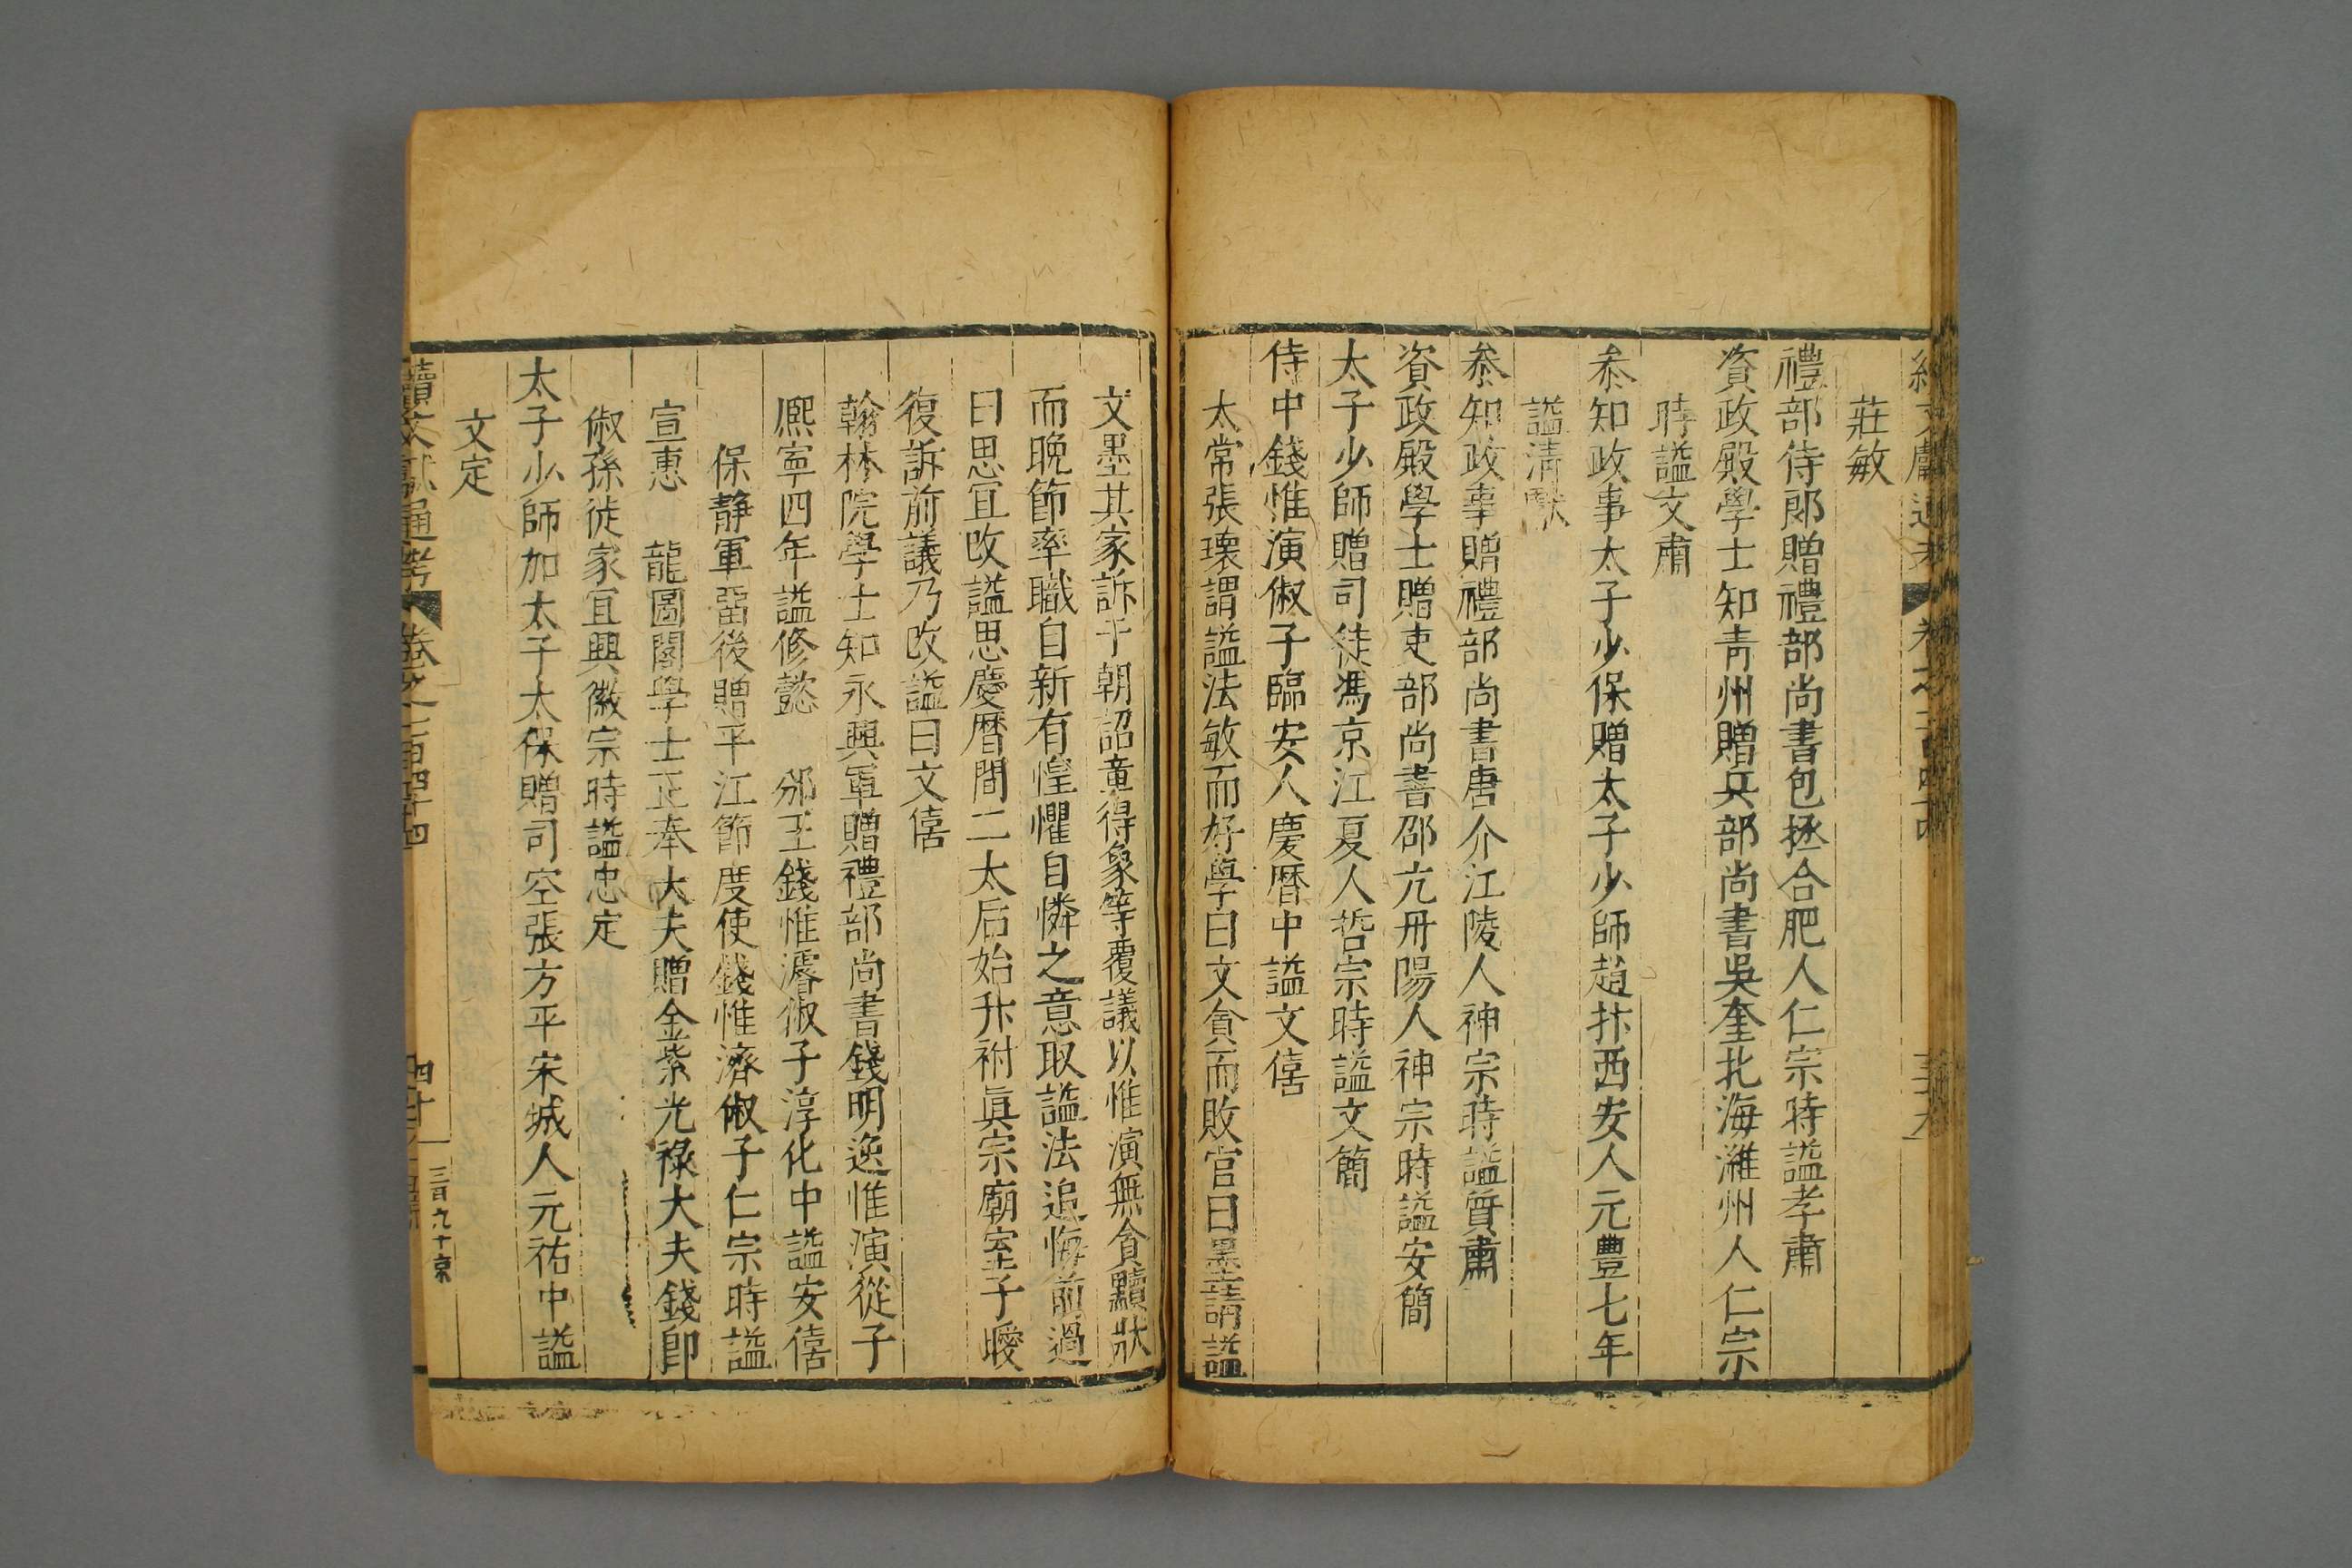 莊敏
禮部侍郎贈禮部尚書包拯合肥人仁宗時謚孝肅
資政殿學士知青州贈兵部尚書吳奎北海濰州人仁宗
時謚文肅
叅知政事太子少保贈太子少師趙抃西安人元豐七年
謚清獻
叅知政事贈禮部尚書唐介江陵人神宗時謚質肅
資政殿學士贈吏部尚書邵亢丹陽人神宗時謚安簡
太子少師贈司徒馮京江夏人哲宗時謚文簡
侍中錢惟演俶子臨安人慶曆中謚文僖
太常張瓌謂謚法敏而好學曰文貪而敗官曰墨請謚
文墨其家訴于朝詔章得象等覆議以惟演無貪黷狀
而晚節率職自新有惶懼自憐之意取謚法追悔前過
曰思宜改謚思慶曆間二太后始升祔眞宗廟室子曖
復訴前議乃改謚曰文僖
翰林院學士知永興軍贈禮部尚書錢明逸惟演從子
熈寧四年謚修懿 邠王錢惟濬俶子淳化中謚安僖
保靜軍留後贈平江節度使錢惟濟俶子仁宗時謚
宣惠 龍圖閣學士正奉大夫贈金紫光祿大夫錢卽
俶孫徙家宜興徽宗時謚忠定
太子少師加太子太保贈司空張方平宋城人元祐中謚
文定
續文獻通考 卷之一百四十四 四十 三百九十京